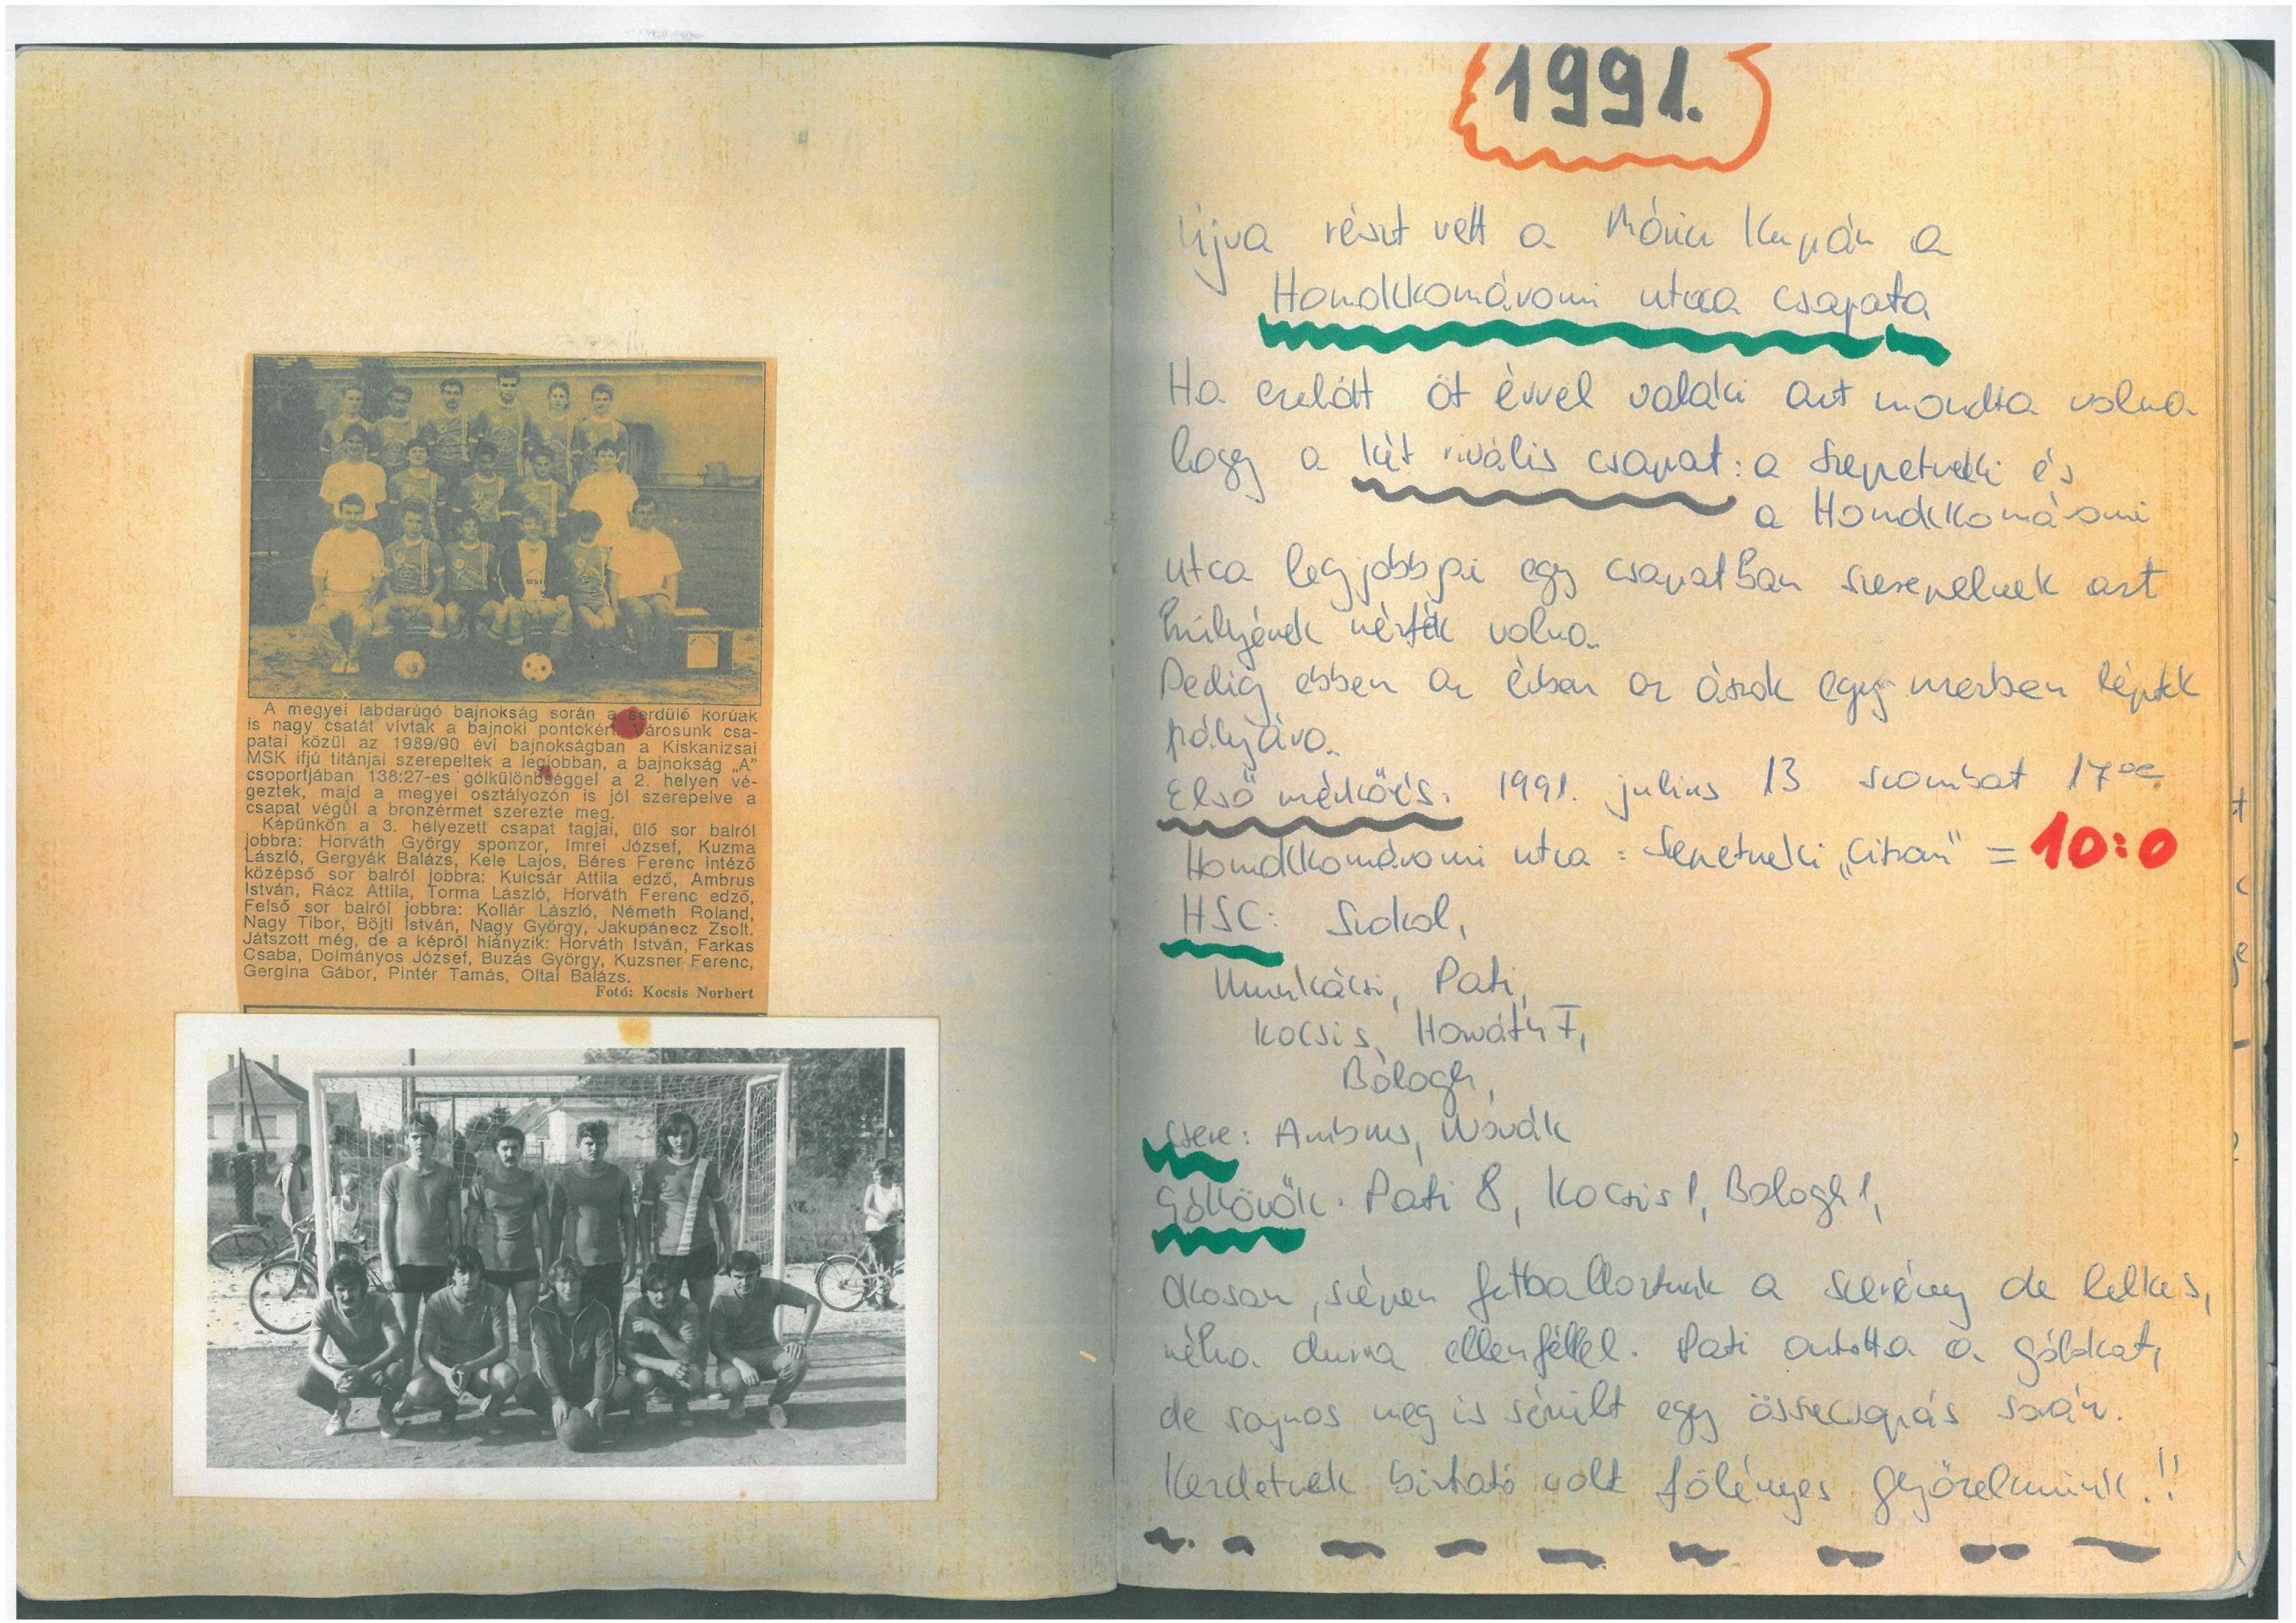 A megyei labdarúgó bajnokság során a serdülő korúak
is nagy csatát vívtak a bajnoki pontokért. Városunk csa-
patai közül az 1989/90 évi bajnokságban a Kiskanizsai
MSK ifjú titánjai szerepeltek a legjobban, a bajnokság „A”
csoportjában 138:27-es gólkülönbséggel a 2. helyen vé-
geztek, majd a megyei osztályozón is jól szerepelve a
csapat végül a bronzérmet szerezte meg.
Képünkön a 3. helyezett csapat tagjai, ülő sor balról
jobbra: Horváth György sponzor, Imrei József, Kuzma
László, Gergyák Balázs, Kele Lajos, Béres Ferenc intéző
középső sor balról jobbra: Kulcsár Attila edző, Ambrus
István, Rácz Attila, Torma László, Horváth Ferenc edző,
Felső sor balról jobbra: Kollár László, Németh Roland,
Nagy Tibor, Böjti István, Nagy György, Jakupánecz Zsolt.
Játszott még, de a képről hiányzik: Horváth István, Farkas
Csaba, Dolmányos József, Buzás György, Kuzsner Ferenc,
Gergina Gábor, Pintér Tamás, Oltai Balázs.
Fotó: Kocsis Norbert
1991.
Újra részt vett a Móricz Kupán a
Homokkomáromi utca csapata
Ha ezelőtt öt évvel valaki azt mondta volna
hogy a két rivális csapat: a Szepetneki és
a Homokkomáromi
utca legjobbjai egy csapatban szerepelnek azt
hülyének nézték volna.
Pedig ebben az évben az ászok egy mezben léptek
pályára.
Első mérkőzés: 1991. július 13 szombat 17 00
Homokkomáromi utca : Szepetneki „Citrom” = 10:0
HSC: Szokol,
Munkácsi, Pati,
Kocsis, Horváth F,
Balogh,
Csere: Ambrus, Novák
Góllövők: Pati 8, Kocsis 1, Balogh 1,
Okosan, szépen futballoztunk a szerény de lelkes,
néha durva ellenféllel. Pati ontotta a gólokat,
de sajnos meg is sérült egy összecsapás során.
Kezdetnek biztató volt fölényes győzelmünk!!